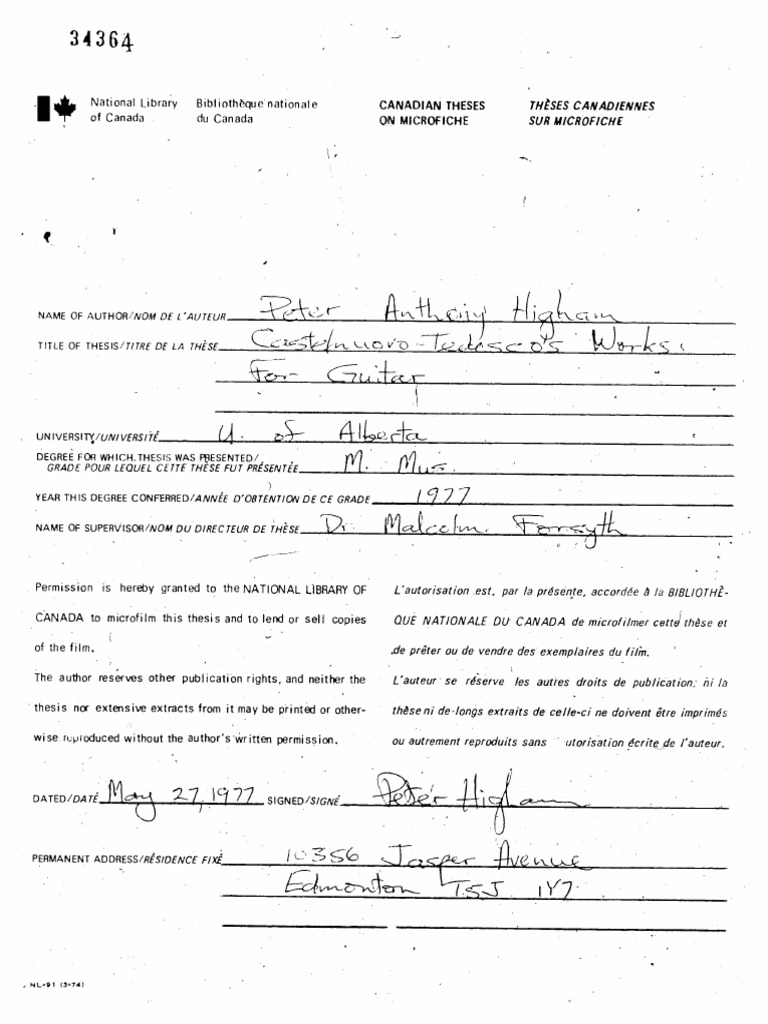 34364
National Library Bibliothèque nationale CANADIAN THESES THÈSES CANADIENNES
of Canada du Canada ON MICROFICHE SUR MICROFICHE
NAME OF AUTHOR/NOM DE L'AUTEUR Peter Anthony Higham
TITLE OF THESIS/TITRE DE LA THÈSE Castelnuovo-Tedesco's Works
For Guitar
UNIVERSITY/UNIVERSITÉ U. of Alberta
DEGREE FOR WHICH THESIS WAS PRESENTED/
GRADE POUR LEQUEL CETTE THÈSE FUT PRÉSENTÉE M. Mus.
YEAR THIS DEGREE CONFERRED/ANNÉE D'OBTENTION DE CE GRADE 1977
NAME OF SUPERVISOR/NOM DU DIRECTEUR DE THÈSE Dr. Malcolm Forsyth
Permission is hereby granted to the NATIONAL LIBRARY OF
CANADA to microfilm this thesis and to lend or sell copies
of the film.
The author reserves other publication rights, and neither the
thesis nor extensive extracts from it may be printed or other-
wise reproduced without the author's written permission.
L'autorisation est, par la présente, accordée à la BIBLIOTHÈ-
QUE NATIONALE DU CANADA de microfilmer cette thèse et
de prêter ou de vendre des exemplaires du film.
L'auteur se réserve les autres droits de publication; ni la
thèse ni de longs extraits de celle-ci ne doivent être imprimés
ou autrement reproduits sans utorisation écrite de l'auteur.
DATED/DATÉ May 27, 1977 SIGNED/SIGNÉ Peter Higham
PERMANENT ADDRESS/RÉSIDENCE FIXÉ 10356 Jasper Avenue
Edmonton T5J 1Y7
NL-91 (3-74)